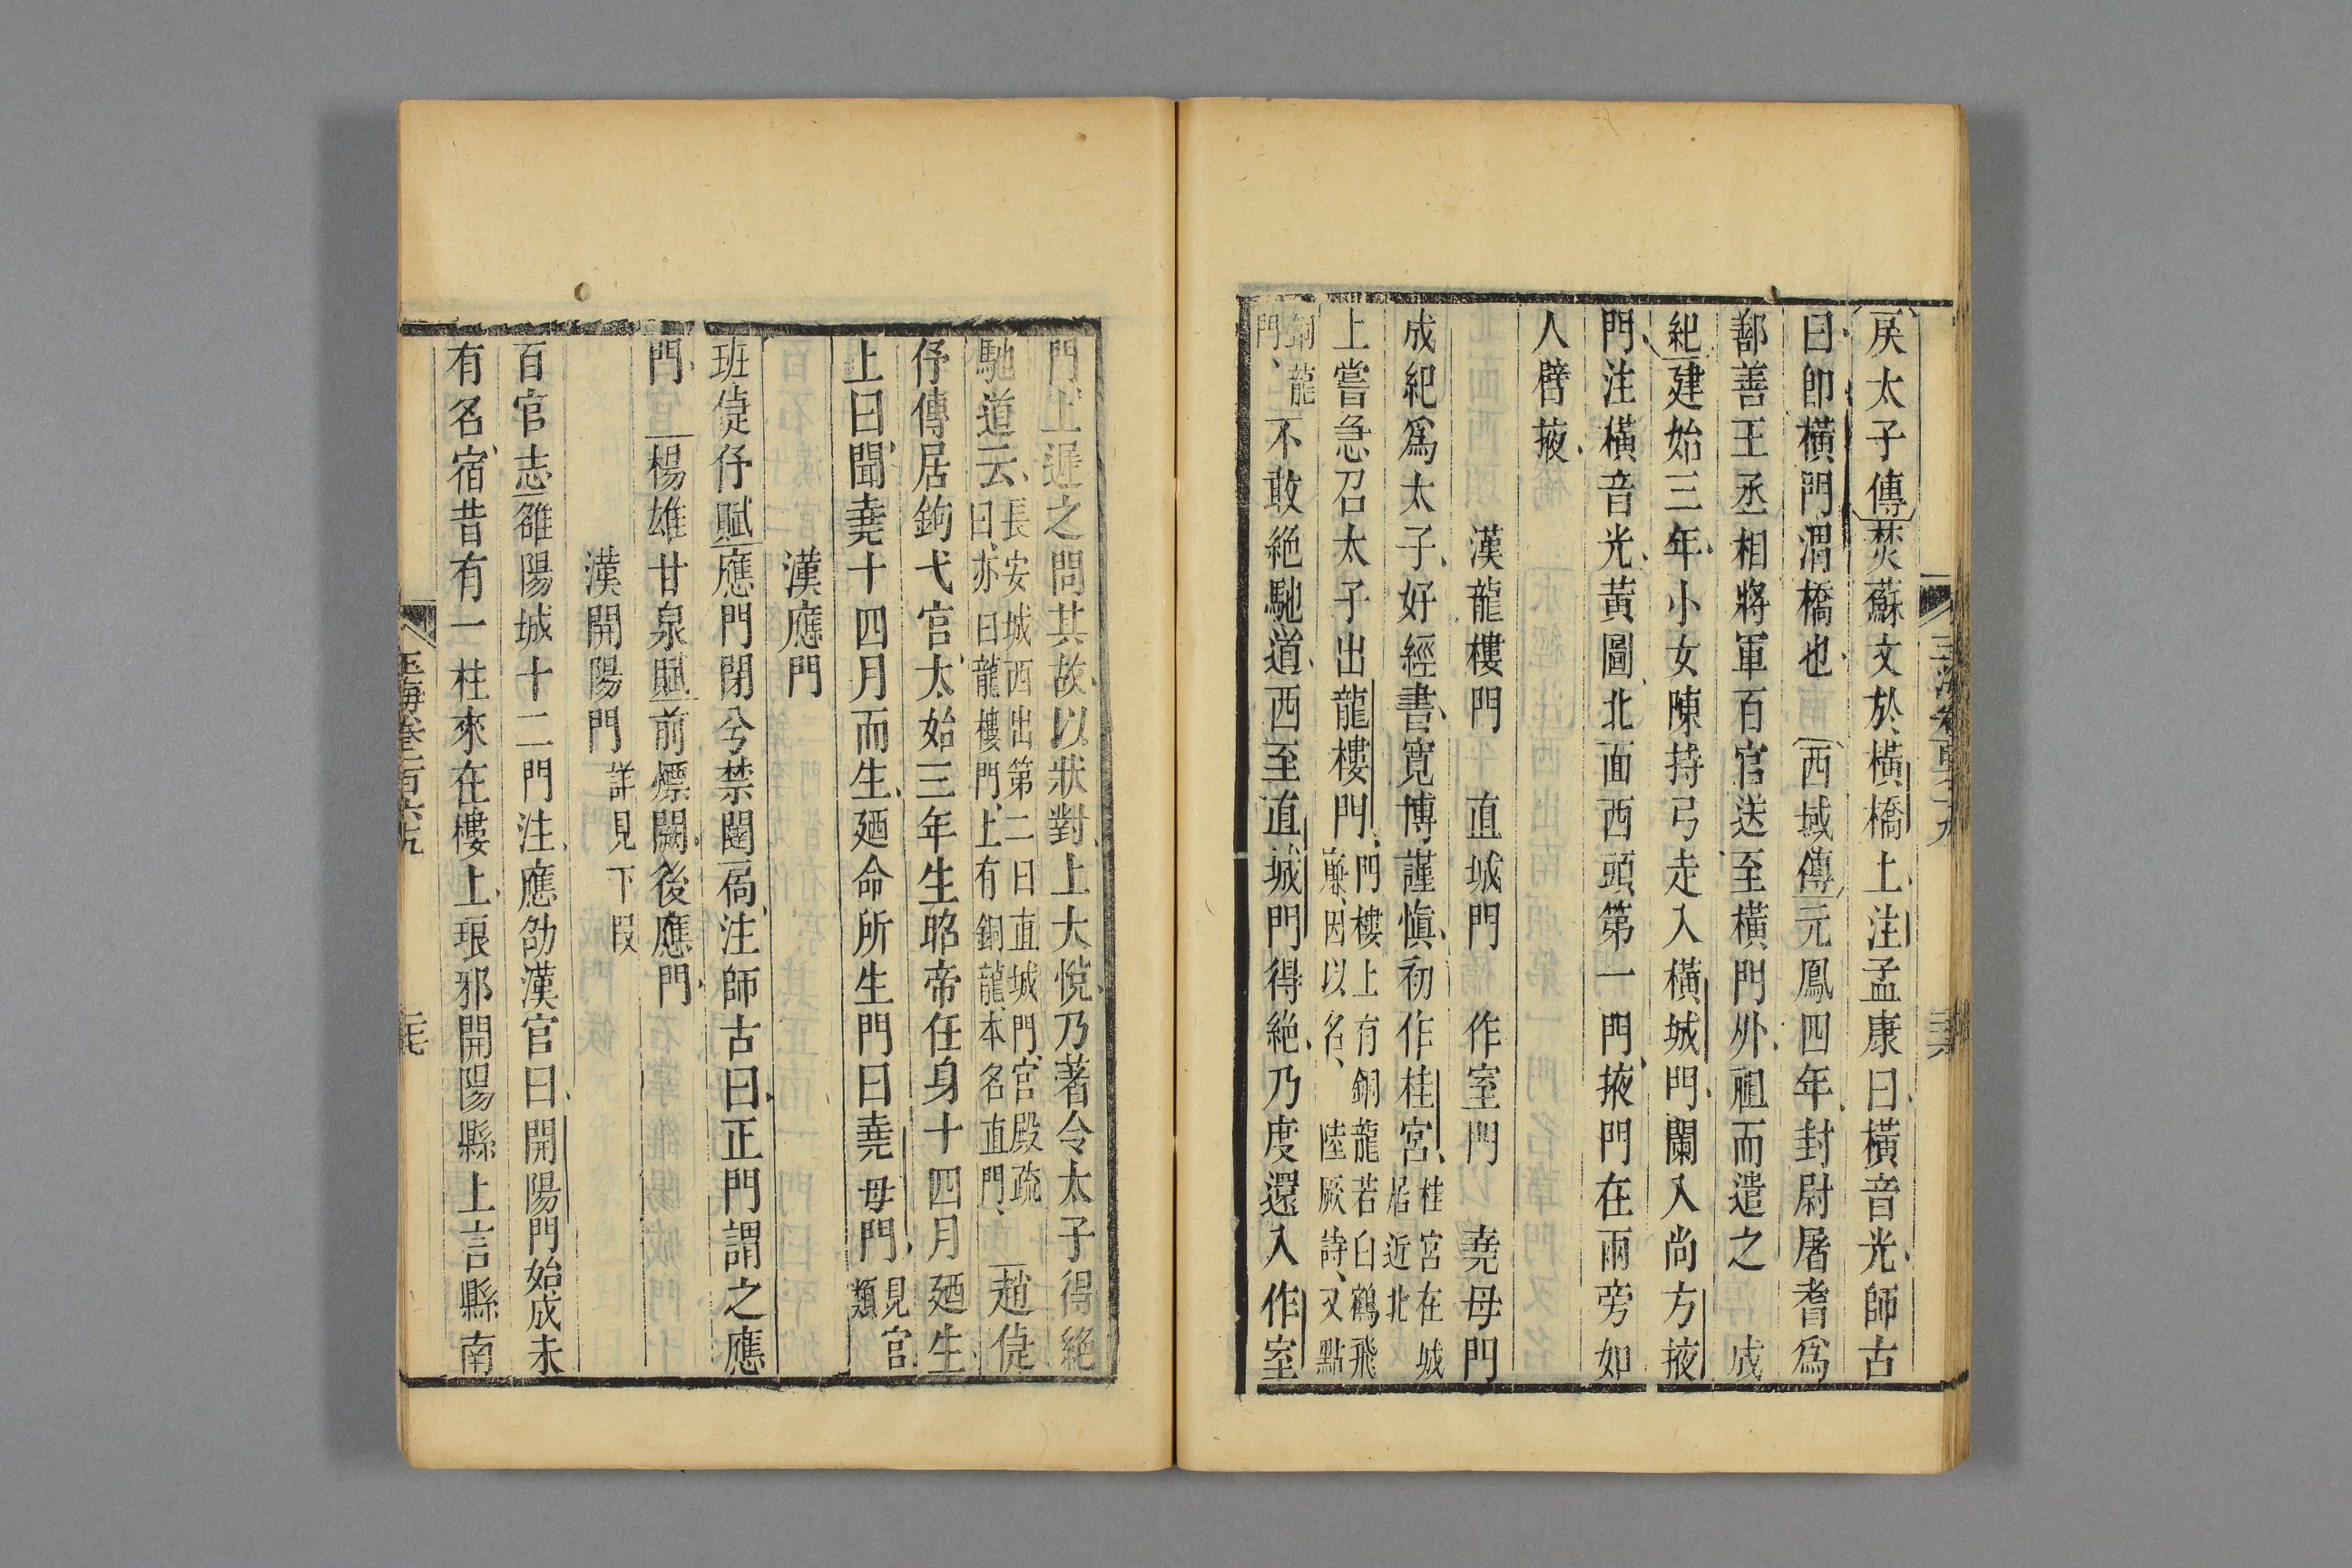 戾太子傳焚蘇文於橫橋上注孟康曰橫音光師古
曰卽橫門渭橋也西域傳元鳳四年封尉屠耆爲
鄯善王丞相將軍百官送至橫門外祖而遣之成
紀建始三年小女陳持弓走入橫城門闌入尚方掖
門注橫音光黃圖北面西頭第一門掖門在兩旁如
人臂掖
漢龍樓門 直城門 作室門 堯母門
成紀爲太子好經書寛博謹愼初作桂宮桂宮在城居近北
上嘗急召太子出龍樓門門樓上有銅龍若白鶴飛廉因以名陸厥詩又點
銅龍門不敢絕馳道西至直城門得絕乃度還入作室
門上遲之問其故以狀對上大悅乃著令太子得絕
馳道云長安城西出第二曰直城門宮殿疏曰亦曰龍樓門上有銅龍本名直門趙倢
伃傳居鉤弋宮太始三年生昭帝任身十四月廼生
上曰聞堯十四月而生廼命所生門曰堯母門見宮類
漢應門
班倢伃賦應門閉兮禁闥扃注師古曰正門謂之應
門楊雄甘泉賦前熛闕後應門
漢開陽門詳見下段
百官志雒陽城十二門注應劭漢官曰開陽門始成未
有名宿昔有一柱來在樓上琅邪開陽縣上言縣南
玉海卷一百六九